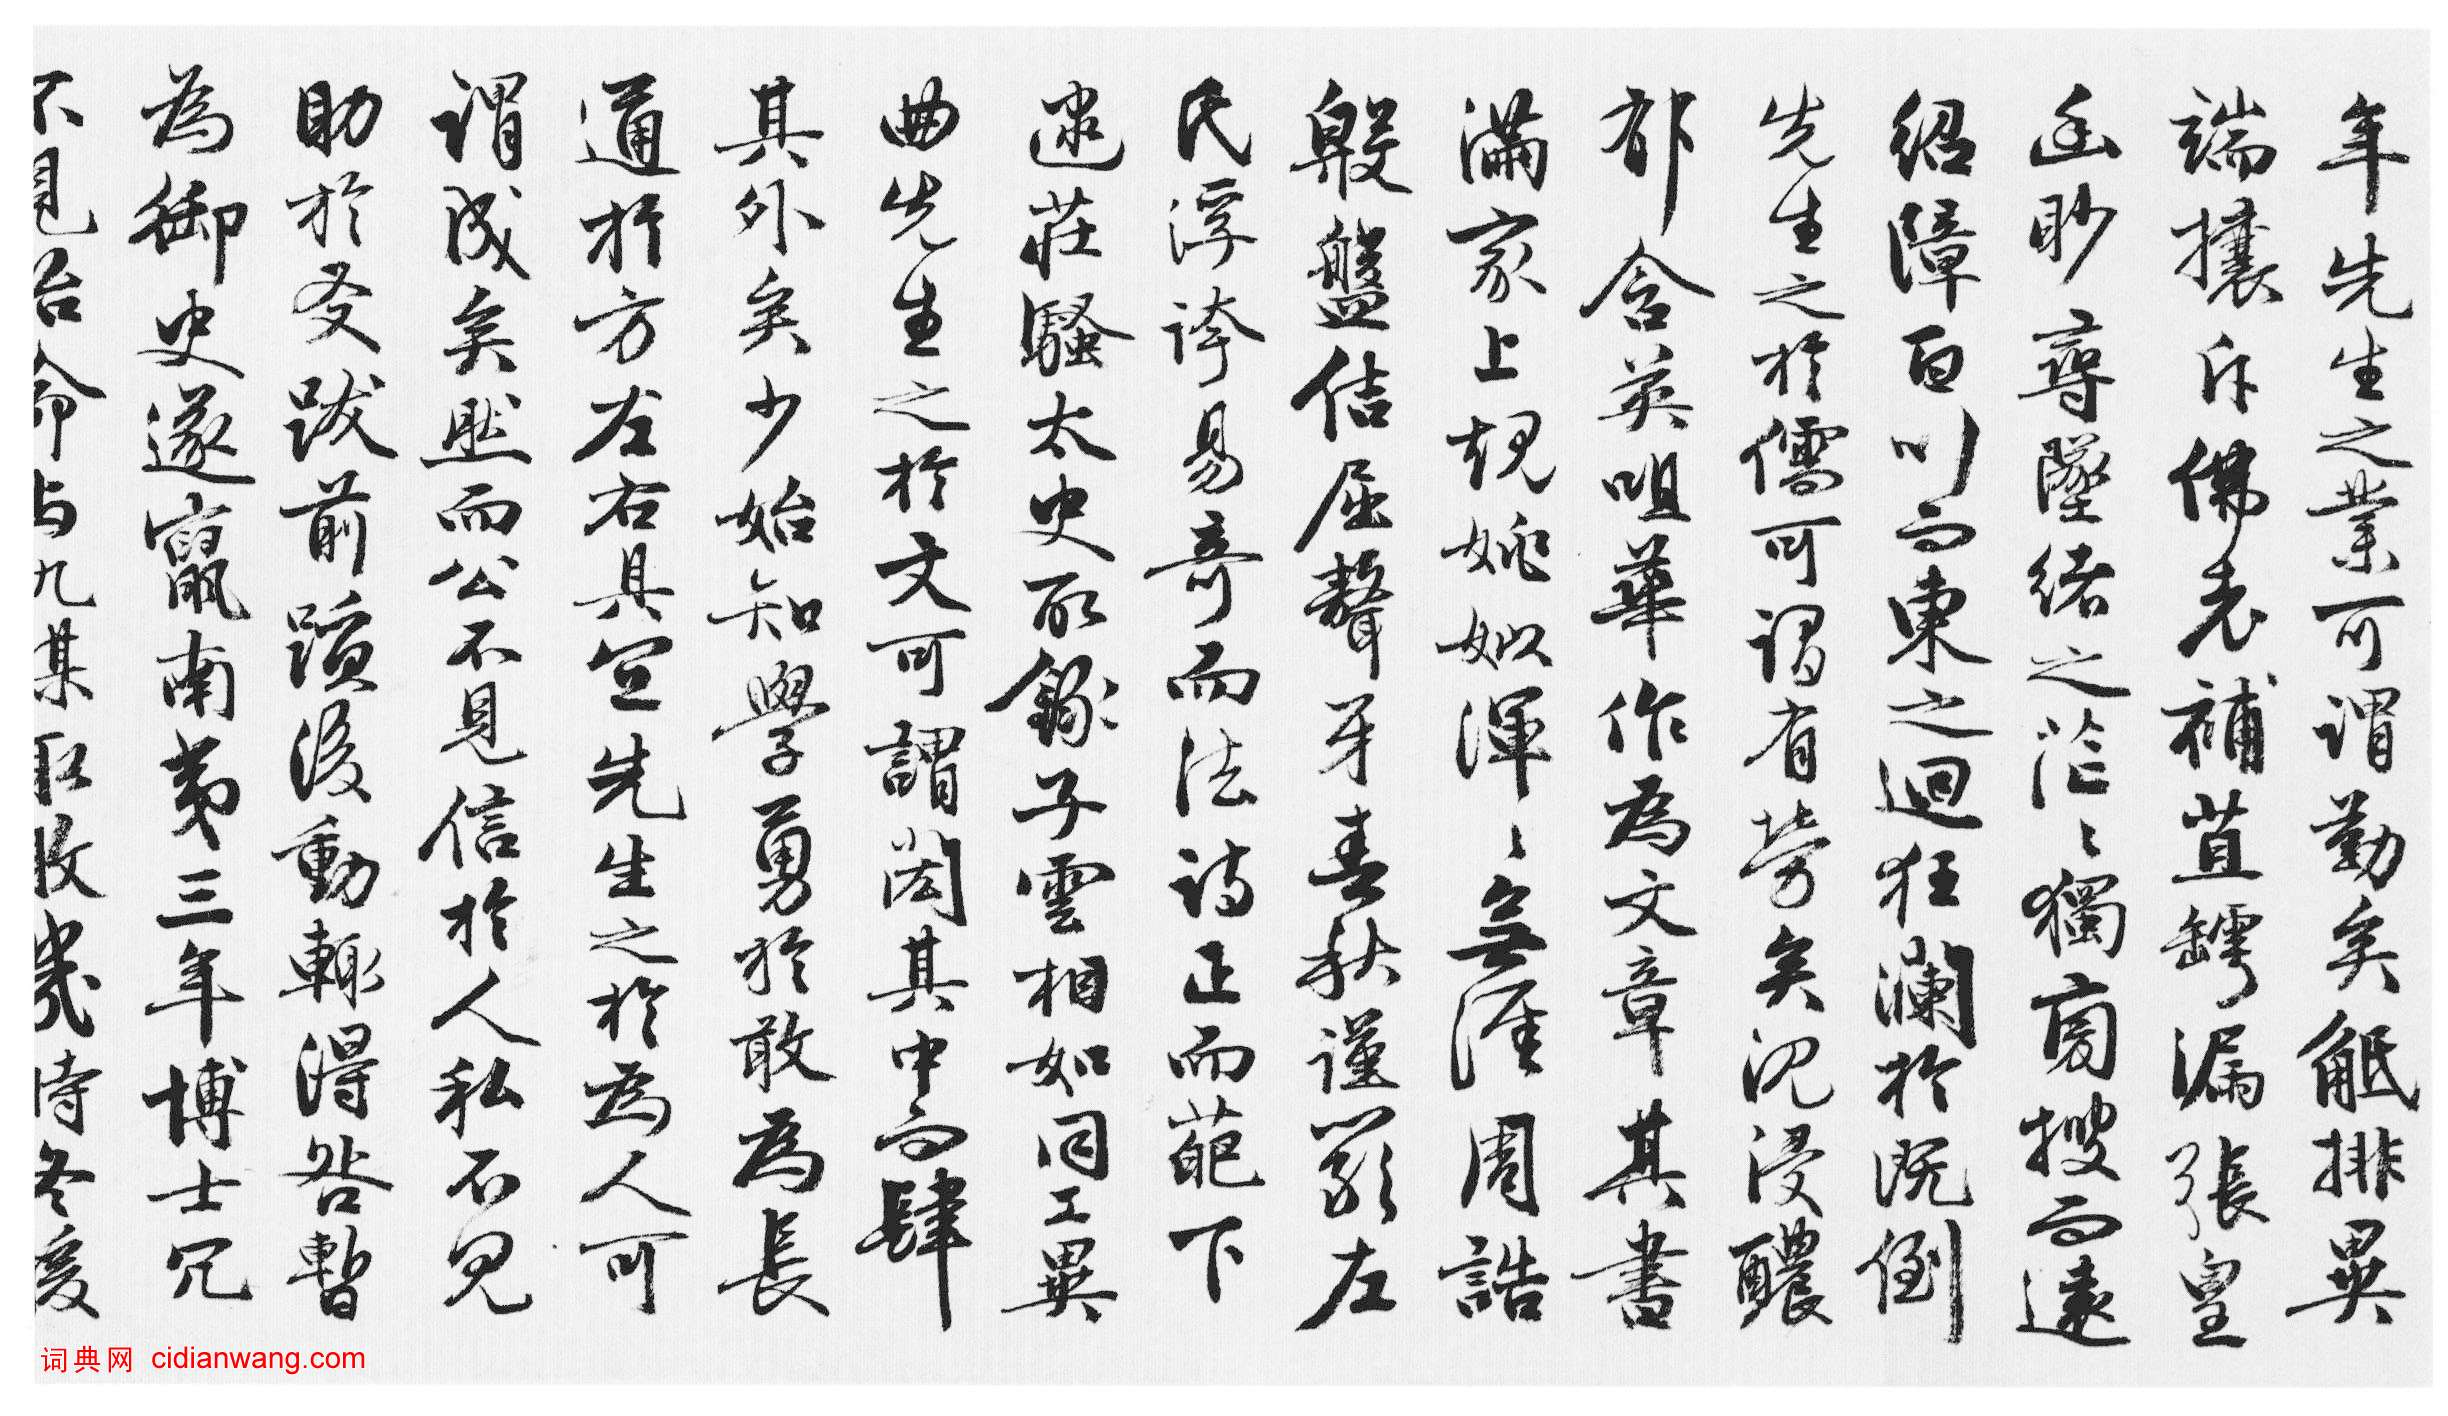 年先生之業可謂勤矣觝排異
端攘斥佛老補苴罅漏張皇
幽眇尋墜緒之茫々獨旁搜而遠
紹障百川而東之迴狂瀾於既倒
先生之於儒可謂有勞矣沉浸醲
郁含英咀華作為文章其書
滿家上規姚姒渾々無涯周誥
殷盤佶屈聱牙春秋謹嚴左
氏浮誇易奇而法詩正而葩下
逮莊騷太史所錄子雲相如同工異
曲先生之於文可謂閎其中而肆
其外矣少始知學勇於敢為長
通於方左右具宜先生之於為人可
謂成矣然而公不見信於人私不見
助於友跋前躓後動輒得咎暫
為御史遂竄南夷三年博士冗
不見治命与仇謀取敗幾時冬暖
词典网 cidianwang.com